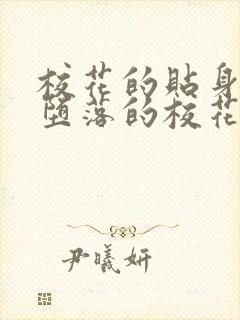 校花的貼身
堕落的校花
尹曦妍